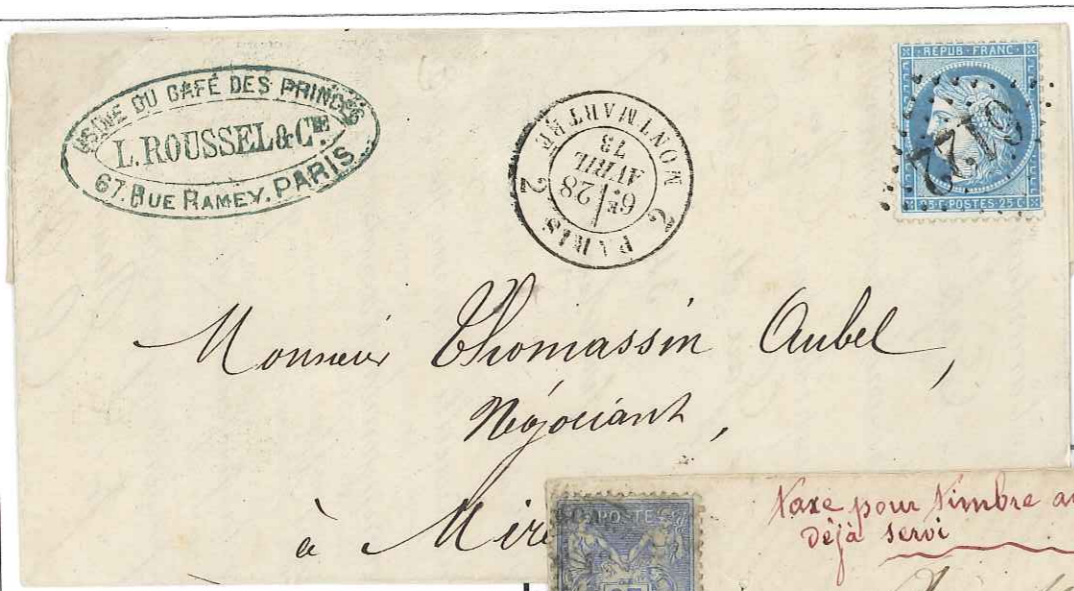 USINE DU CAFÉ DES PRINCES
L. ROUSSEL & CIE
67. RUE RAMEY. PARIS
PARIS 2
MONTMARTRE
2
6E
28
AVRIL
73
REPUB·FRANC·
25·C·POSTES·25·C
6122
Monsieur Thomassin Aubel,
Négociant,
à Mire
POSTES
Taxe pour timbre a
Déjà servi